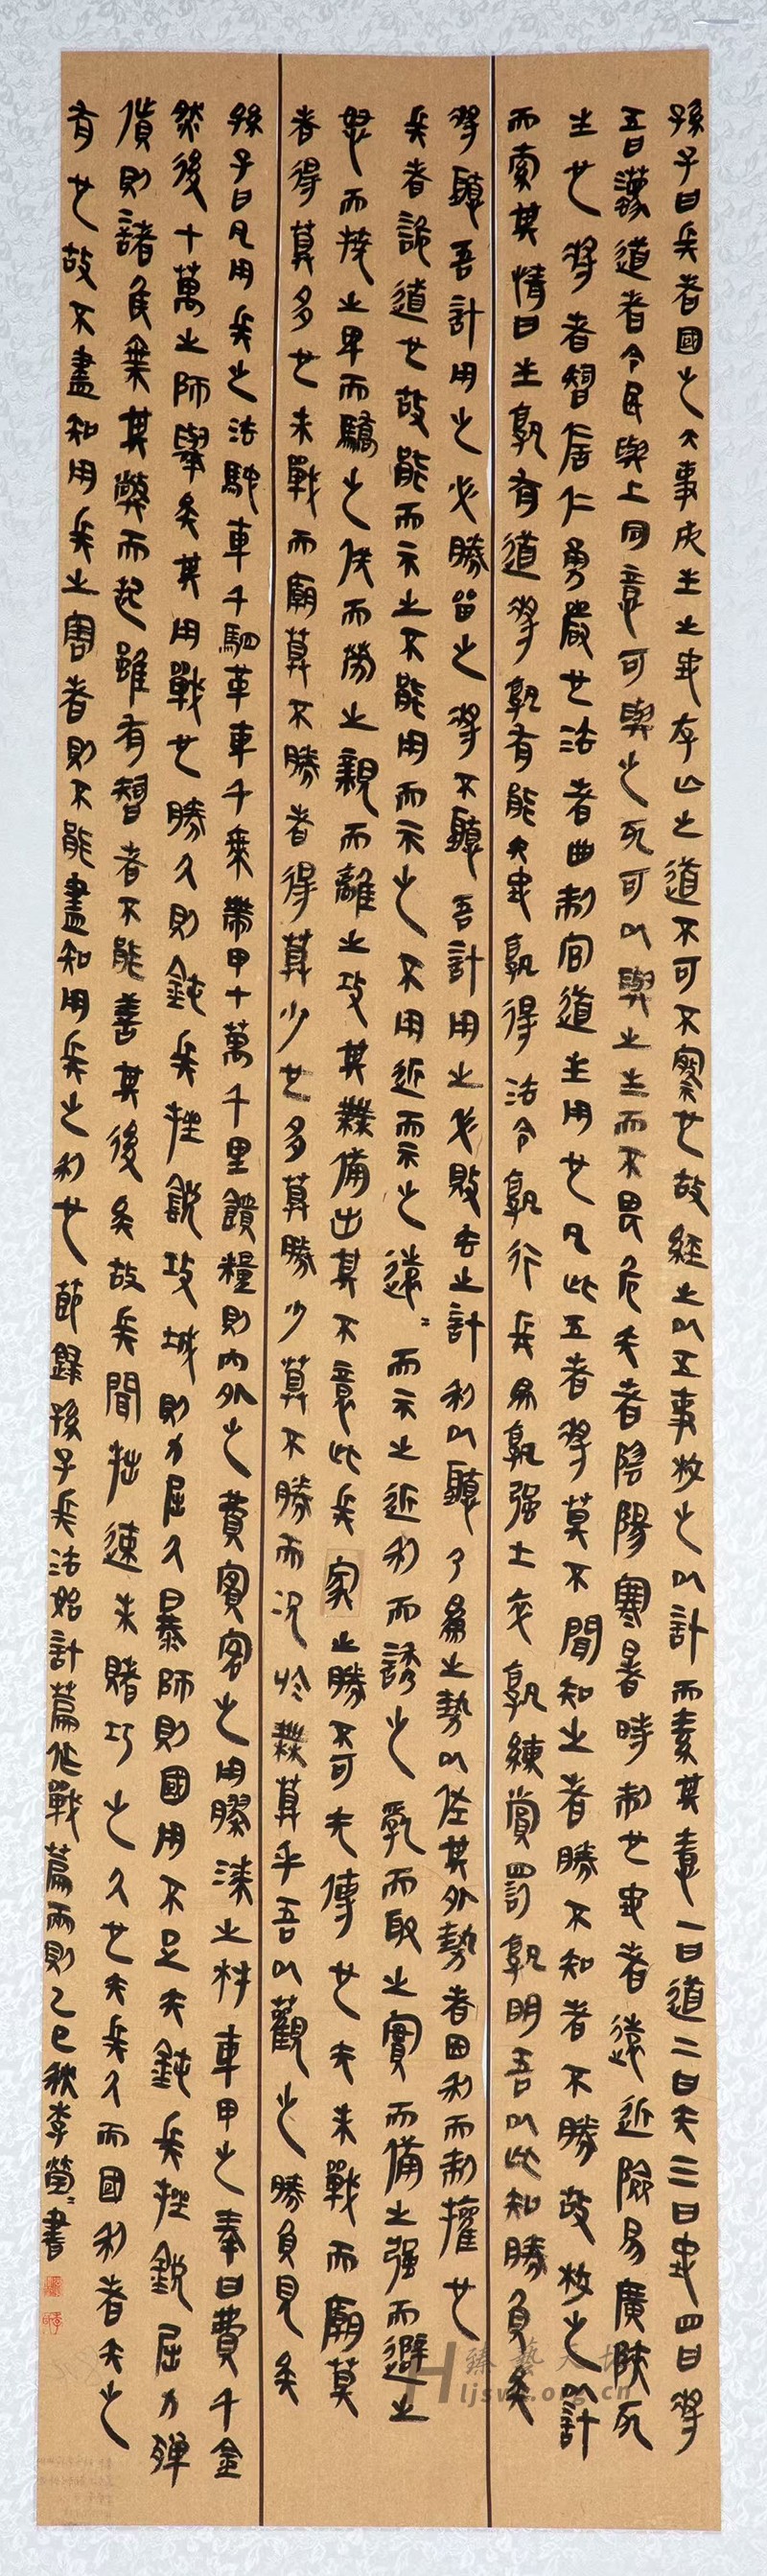 孫子曰兵者國之大事死生之地存亡之道不可不察也故經之以五事效之以計而索其意一曰道二曰天三曰地四曰將
五曰灋道者令民與上同意可與之死可以與之生而不畏危天者陰陽寒暑時制也地者遠近險易廣陜死
生也將者智信仁勇嚴也法者曲制官道主用也凡此五者將莫不聞知之者勝不知者不勝故效之以計
而索其情曰主孰有道將孰有能天地孰得法令孰行兵眾孰强士卒孰練賞罰孰明吾以此知勝負矣
將聽吾計用之必勝留之將不聽吾計用之必敗去之計利以聽乃為之勢以佐其外勢者因利而制權也
兵者詭道也故能而示之不能用而示之不用近而示之遠遠而示之近利而誘之亂而取之實而備之强而避之
怒而撓之卑而驕之佚而勞之親而離之攻其無備出其不意此兵家之勝不可先傳也夫未戰而廟算
者得算多也未戰而廟算不勝者得算少也多算勝少算不勝而況於無算乎吾以觀之勝負見矣
孫子曰凡用兵之法馳車千駟革車千乘帶甲十萬千里饋糧則內外之費賓客之用膠漆之材車甲之奉日費千金
然後十萬之師舉矣其用戰也勝久則鈍兵挫銳攻城則力屈久暴師則國用不足夫鈍兵挫銳屈力殫
貨則諸侯乘其弊而起雖有智者不能善其後矣故兵聞拙速未睹巧之久也夫兵久而國利者未之
有也故不盡知用兵之害者則不能盡知用兵之利也 節錄孫子兵法始計篇作戰篇兩則乙巳秋李瑩瑩書
臻藝天地
ljsw.org.cn